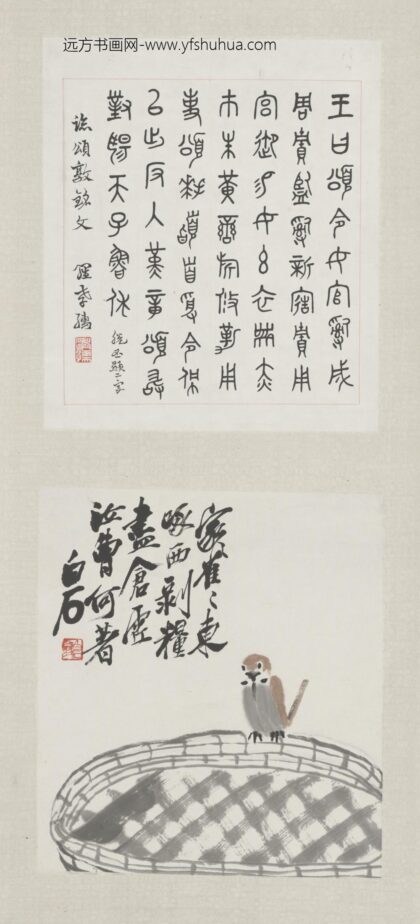 远方书画网-www.yfshuhua.com
王曰頌令女官𤔲成
周貯監𤔲新寤貯用
宮御易女玄衣黹赤
市朱黃鑾旂攸勒用
事頌拜𩒨首受令冊
以出反入堇章頌敢
對揚天子魯休 脫丕顯二字
頌敦銘文 羅
家雀〻東
啄西剝糧
盡倉虛
汝曹何著
白石